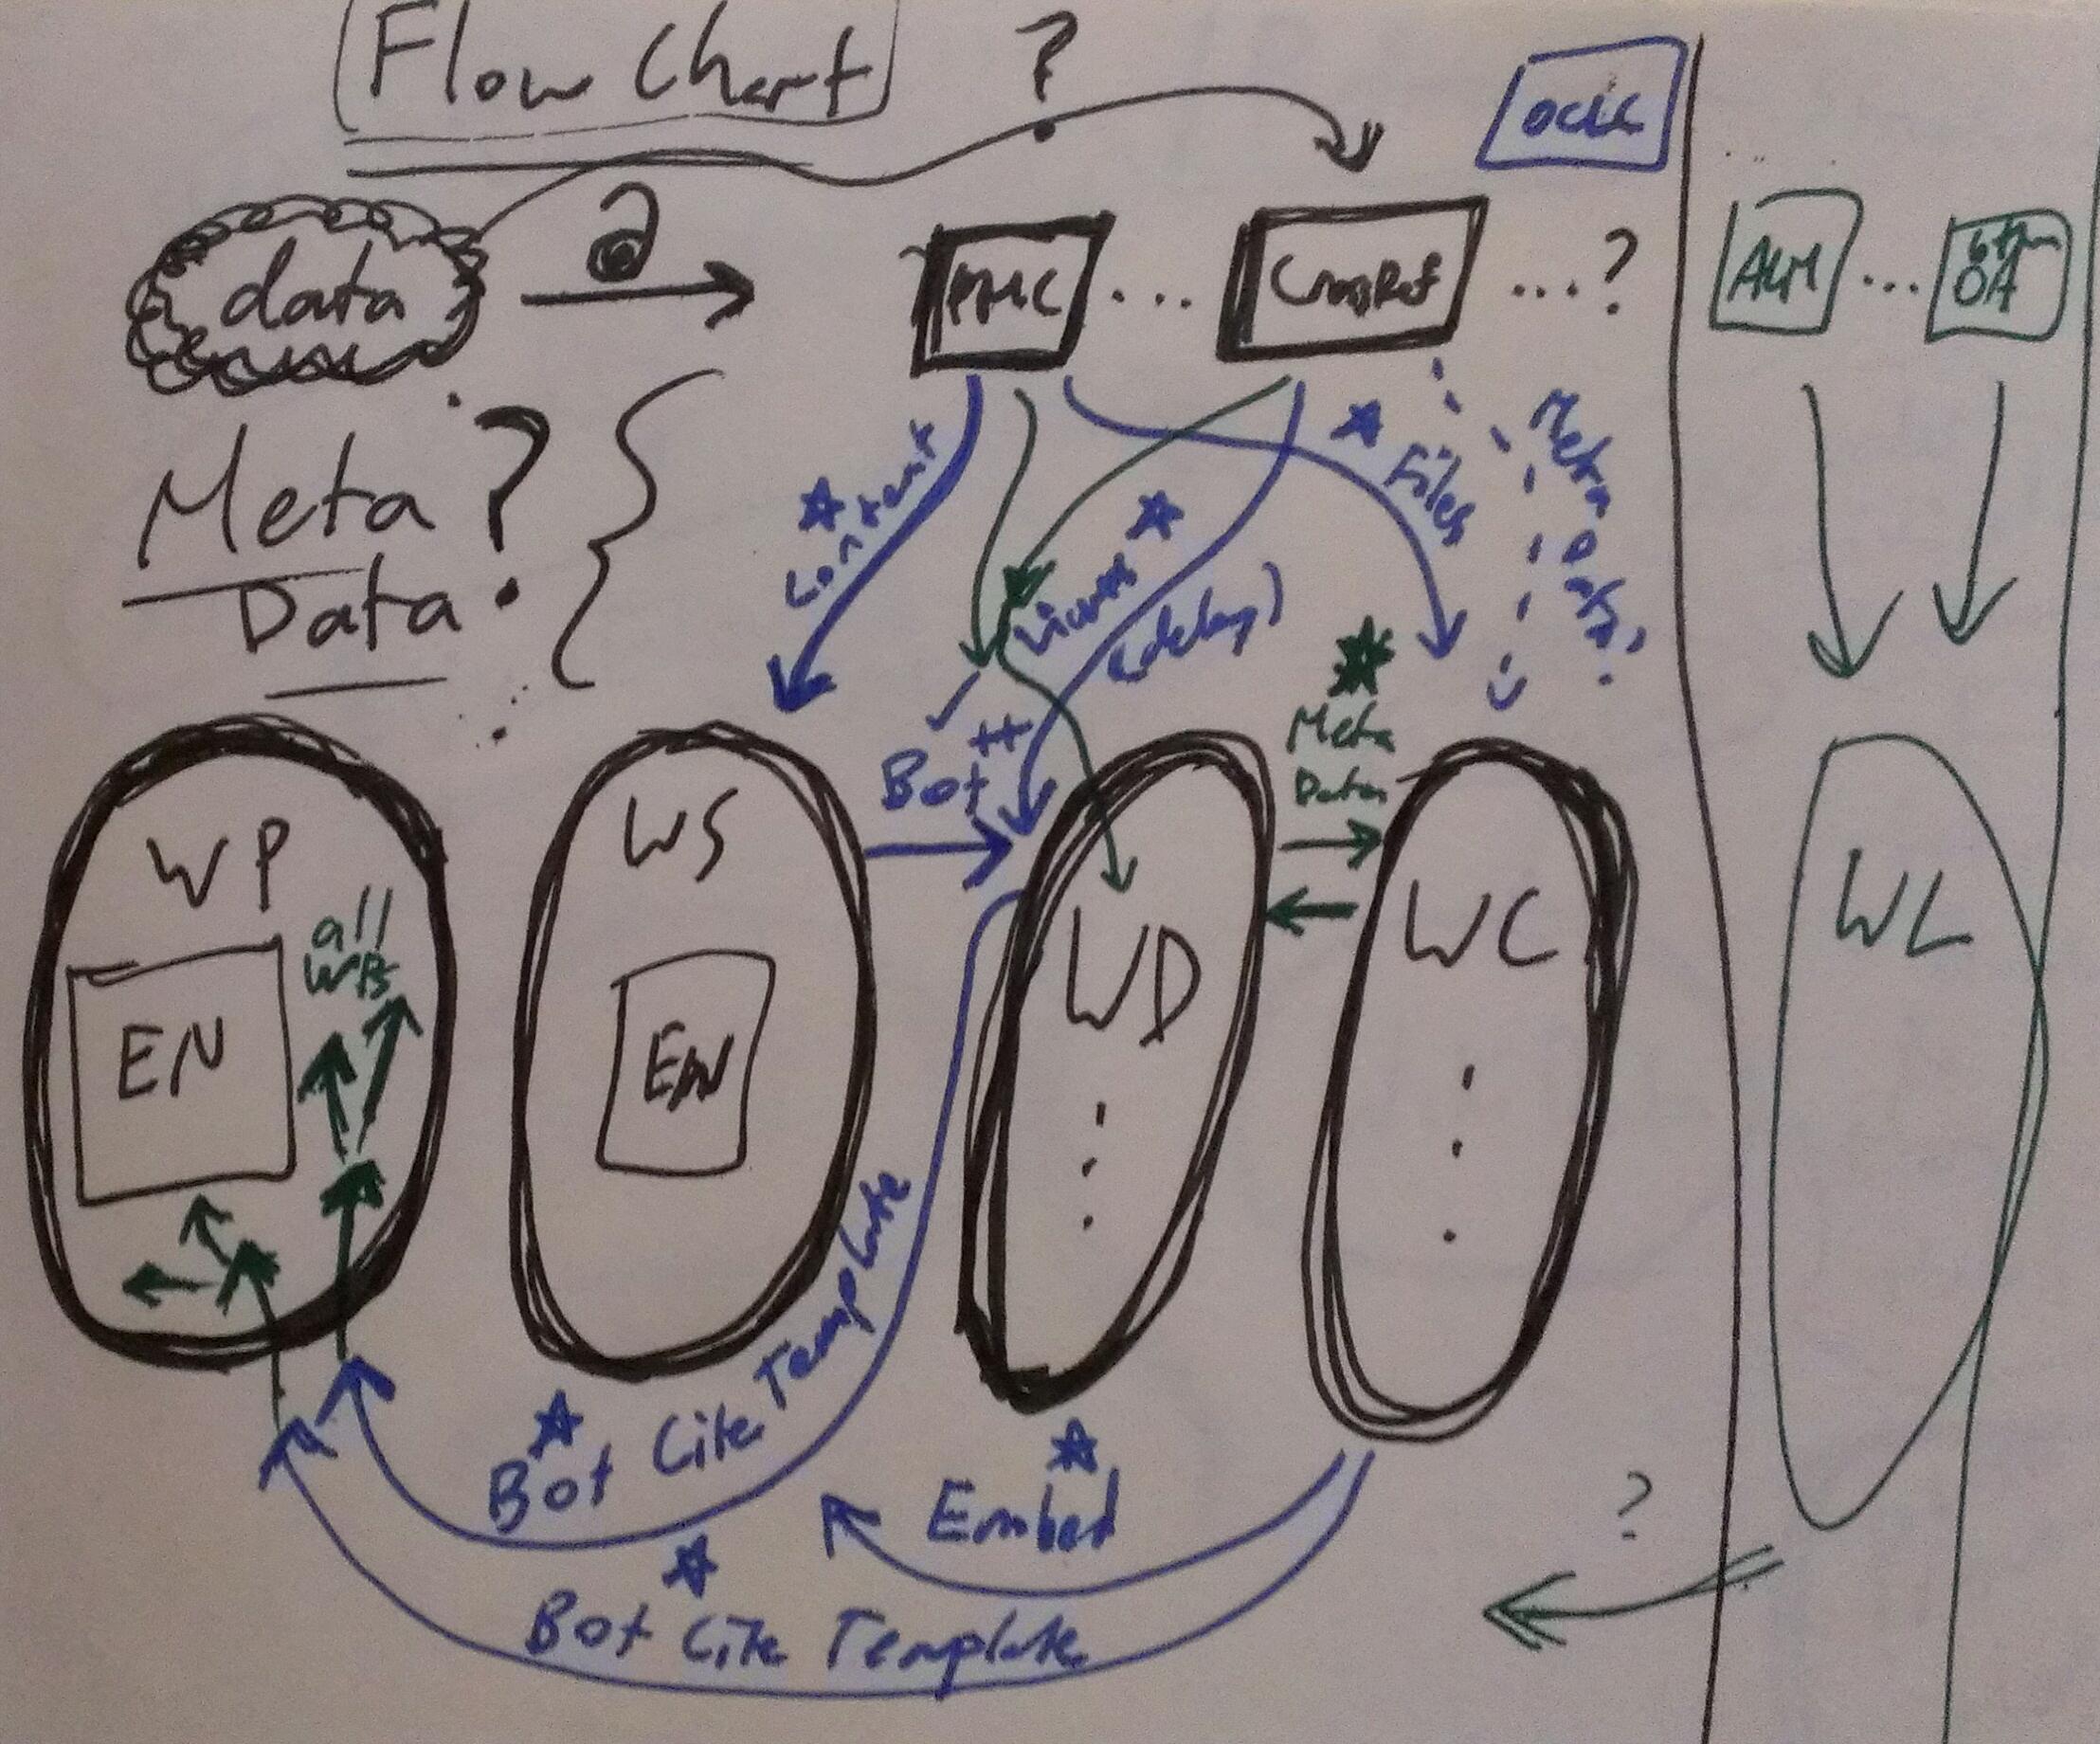 Flow Chart
?
OCLC
data
PMC
...
CrossRef
...?
ALM
...
OA
Meta?
Data
Content
Files
Meta
Only?
(delay)
Bot++
Meta
Data
WP
all
WPs
EN
WS
EN
WD
WC
WL
Bot Cite Template
Embed
?
Bot Cite Template